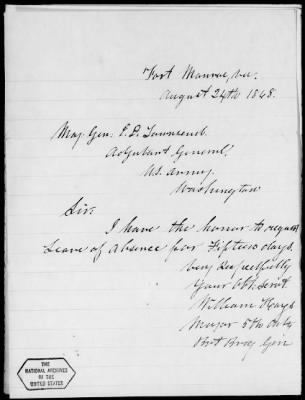 Fort Monroe, Va.
August 24th 1868.
Maj. Gen. E. D. Townsend.
Adjutant General,
U.S. Army,
Washington
Sir:
I have the honor to request
Leave of Absence for Fifteen days.
Very Respectfully
Your Obt. Servt
William Hays
Major 5th Arty
Bvt Brig Gen
THE
NATIONAL ARCHIVES
OF THE
UNITED STATES